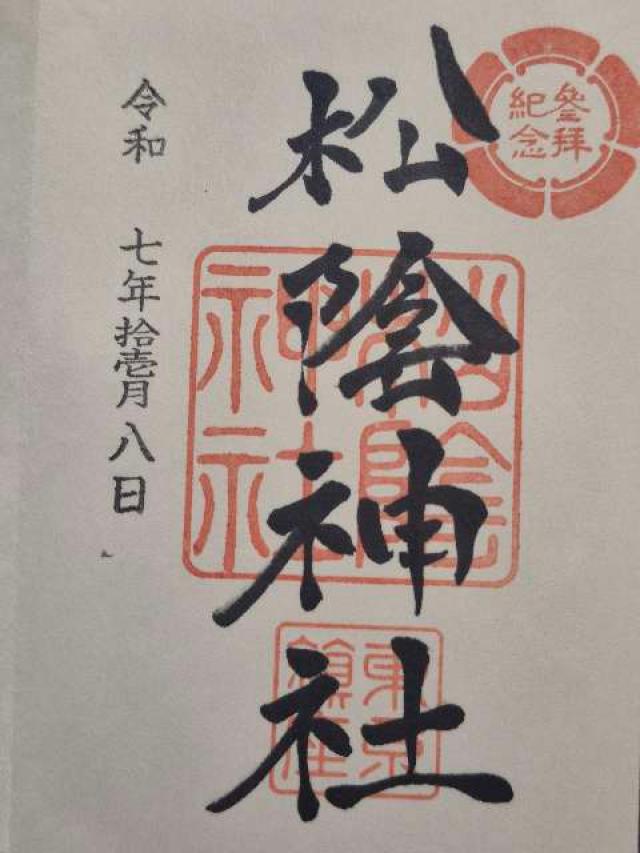 參拜
紀念
松陰神社
松陰
神社
東京
鎮座
令和 七年拾壱月八日